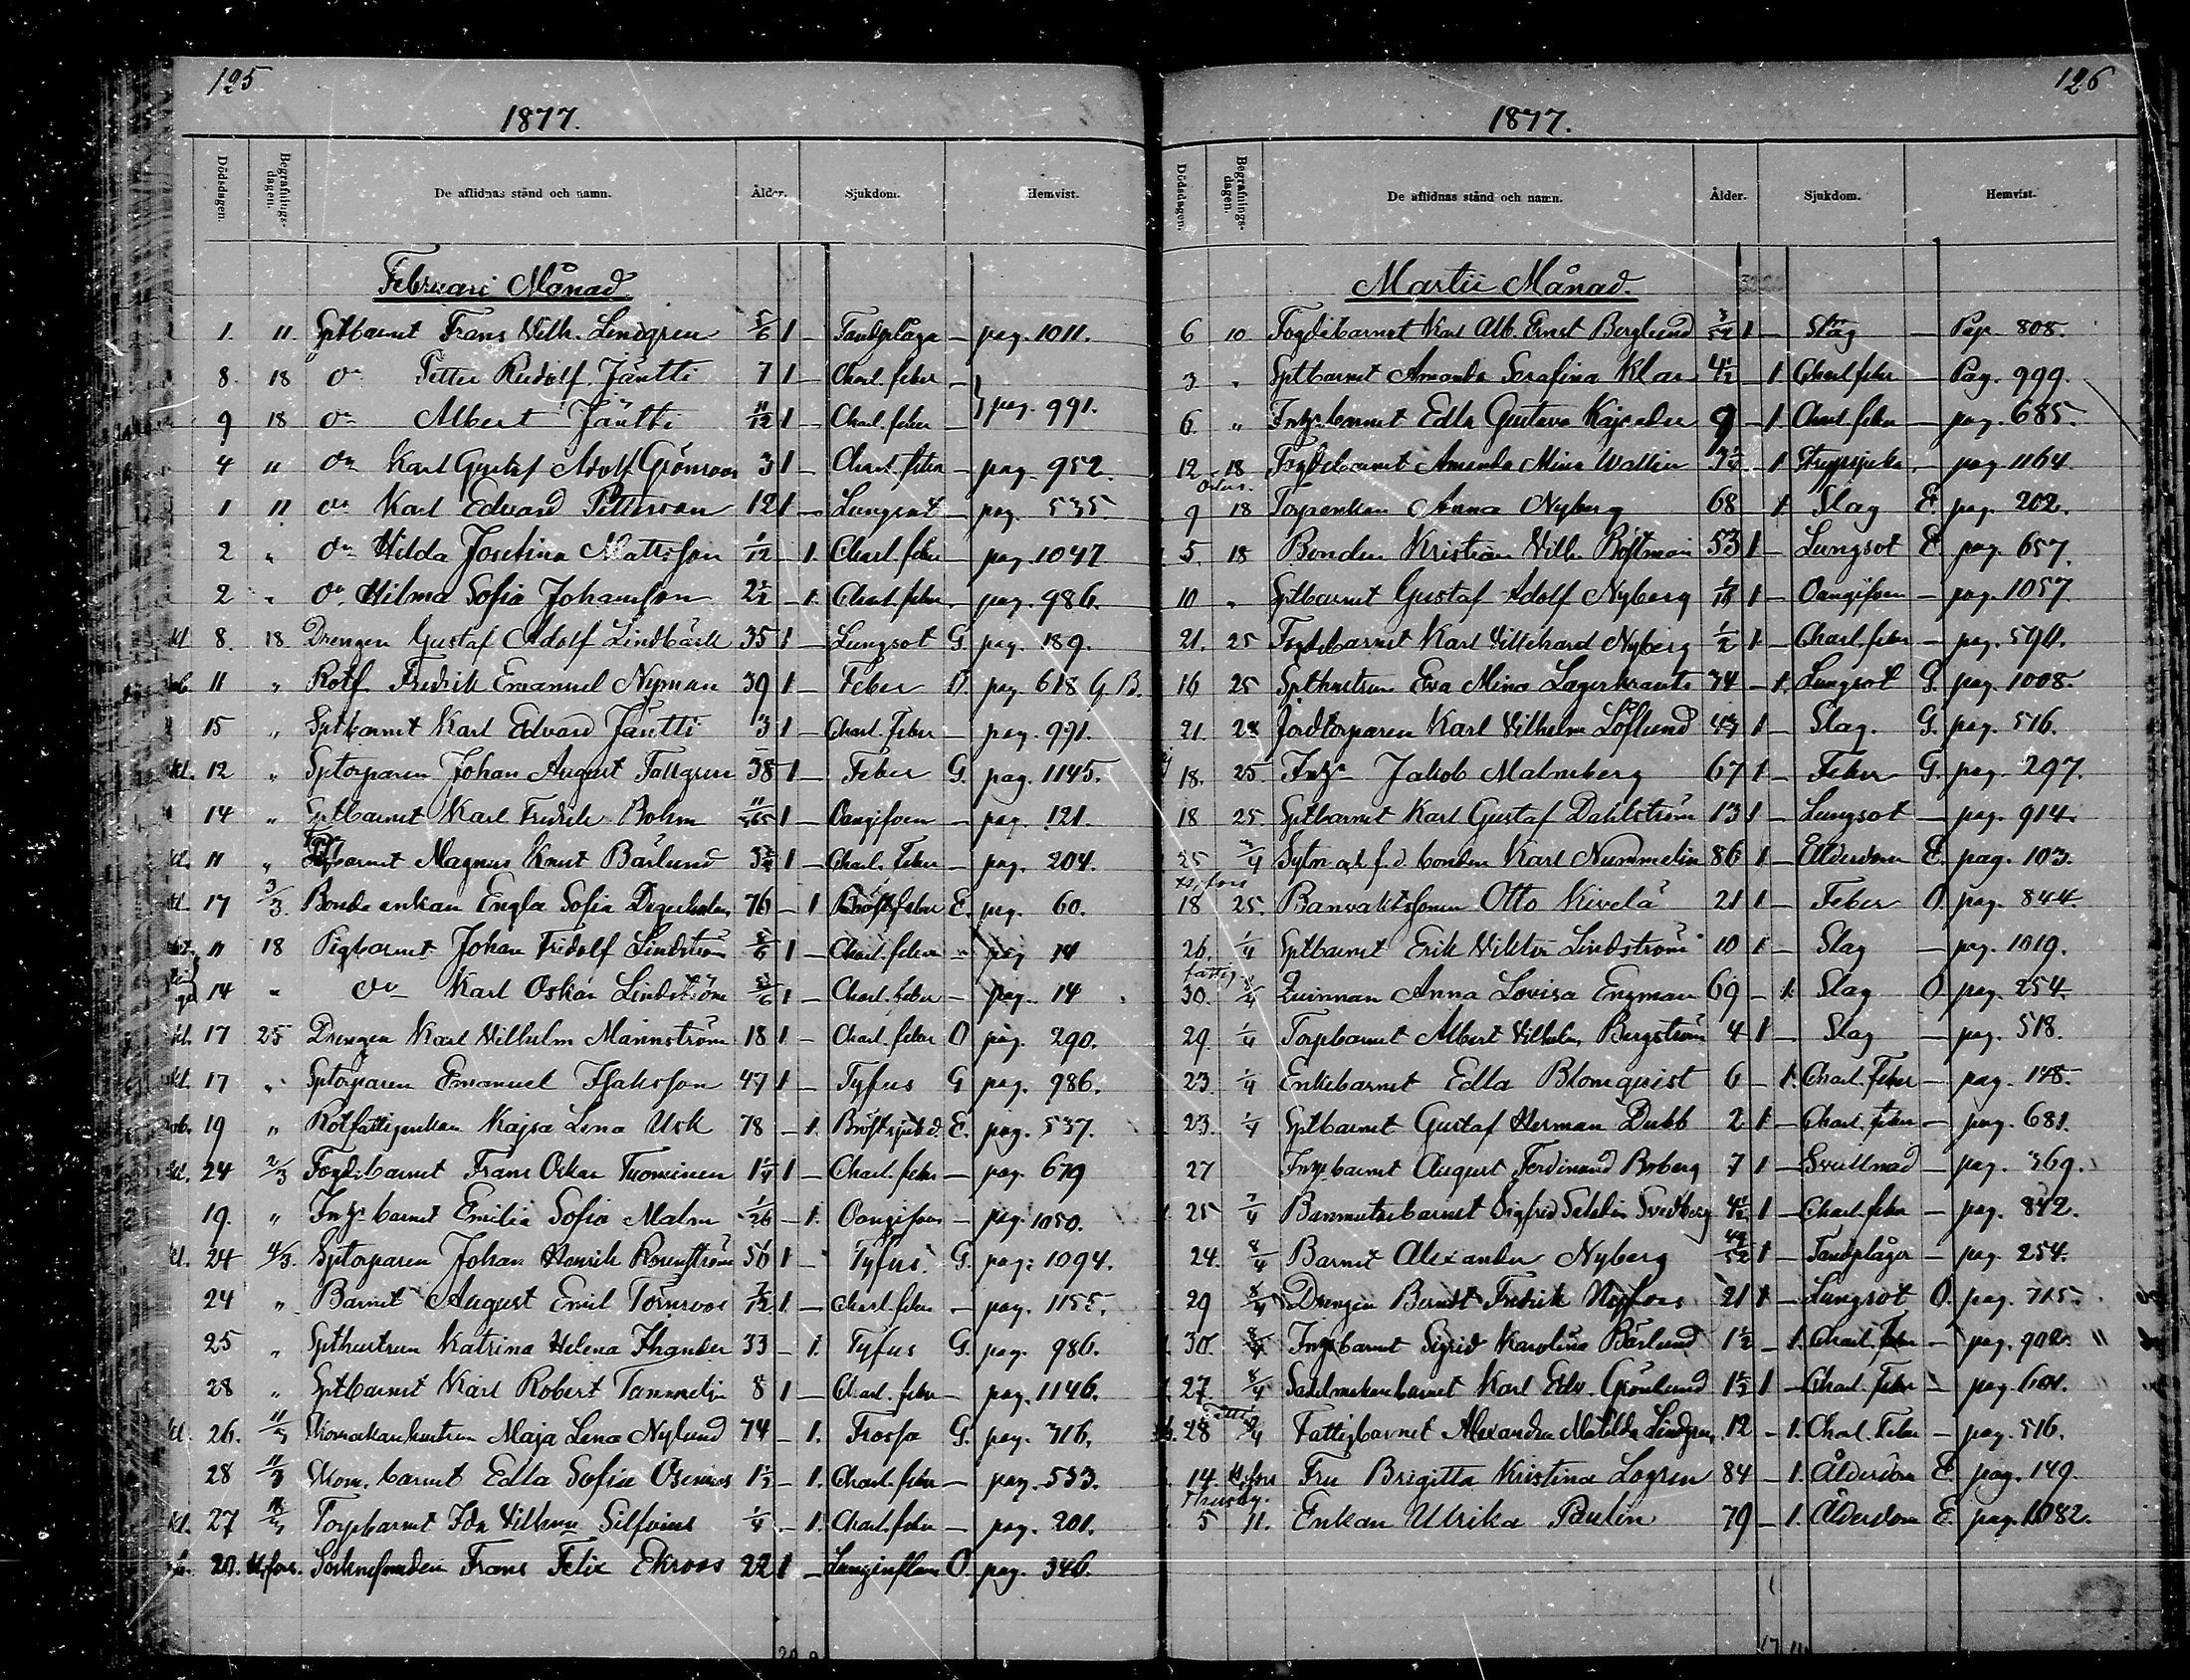 125
1877.
Dödsdagen. Begrafningsdagen. De aflidnas stånd och namn. Ålder. Sjukdom. Hemvist.
Februari Månad.
1. 11. Sptbarnet Frans Vilh. Lindgren 5/6 1 — Tandplåga — pag. 1011.
8. 18 do Petter Rudolf Jäntti 7 1 — Charl. feber —
9 18 do Albert Jäntti 11/12 1 — Charl. feber — } pag. 991.
4 11 do Karl Gustaf Adolf Grönroos 3 1 — Charl. feber — pag. 952.
1 11 do Karl Edvard Petterson 12 1 — Lungsot — pag. 535.
2 " do Hilda Josefina Mattsson 1/12 — 1. Charl. feber — pag. 1047.
2 " do Hilma Sofia Johansson 2 1/2 — 1. Charl. feber — pag. 986.
kl. 8. 18. Drengen Gustaf Adolf Lindbäck 35 1 — Lungsot G. pag. 189.
11 " Rotf. Fredrik Emanuel Nyman 39 1 — Feber O. pag. 618 G. B.
15 " Sptbarnet Karl Edvard Jäntti 3 1 — Charl. Feber — pag. 991.
kl. 12 " Sptorparen Johan August Tallgren 38 1 — Feber G. pag. 1145.
14 " Sptbarnet Karl Fredrik Bohm 11/365 1 — Oangifven — pag. 121.
kl. 11 " barnet Magnus Knut Bärlund 3 1 — Charl. Feber — pag. 204.
kl. 17 3/3 Bonde enkan Engla Sofia 76 — 1 Bröstfeber E. pag. 60.
11 18 Pigbarnet Johan Fridolf Lindström 5/6 1 — Charl. feber " pag 14
14 " do Karl Oskar Lindström 5/6 1 — Charl. feber — pag. 14
kl. 17 25 Drengen Karl Vilhelm Männström 18 1 — Charl. feber O pag. 290.
kl. 17 " Sptorparen Emanuel Isaksson 47 1 — Tyfus G pag. 986.
ob. 19 " Rotfattigenkan Kajsa Lena Usk 78 — 1. Bröstsjukd. E. pag. 537.
kl. 24 2/3 Fogdebarnet Frans Oskar Tuominen 1 1/4 1 — Charl. feber — pag. 679
19. " Inhys barnet Emilia Sofia Malm 1/26 — 1. Oangifven — pag. 1050.
kl. 24 4/3. Sptorparen Johan Henrik Rosenström 56 1 — Tyfus. G. pag. 1094.
24 " Barnet August Emil Törnroos 7/12 1. — Charl. feber — pag. 1155.
25 " Spthustrun Katrina Helena Thander 33 — 1. Tyfus G. pag. 986.
28 " Sptbarnet Karl Robert Tammelin 8 1 — Charl. feber — pag. 1146.
kl. 26. 11/3 Maja Lena Nylund 74 — 1. Frossa G. pag. 316.
28 11/3 Skom. barnet Edla Sofia 1 1/2 — 1. Charl. feber — pag. 533.
kl. 27 Torpbarnet Ida Vilhmina Silfvius 1/4 — 1. Charl. feber — pag. 201.
20. H:fors. Frans Felix Ekroos 22 1 — Lunginflam O. pag. 346.
126
1877.
Dödsdagen. Begrafningsdagen. De aflidnas stånd och namn. Ålder. Sjukdom. Hemvist.
Martii Månad.
6 10 Fogdebarnet Karl Alb. Ernst Berglund 3/52 1 — Slag — Pag. 808.
3 " Sptbarnet Amanda Serafina Klar 4 1/2 — 1. Charl. feber — Pag. 999.
6. " Inhys barnet Edla Gustava 9 — 1. Charl. feber — pag. 685.
12 18 Fogdebarnet Amanda Mina Wallin 3 — 1 Strypsjuka — pag. 1164.
9 18 Torparenkan Anna Nyberg 68 1. Slag E. pag. 202.
5. 18 Bonden Kristian Vilh. Böstman 53 1 — Lungsot E. pag. 657.
10 " Sptbarnet Gustaf Adolf Nyberg 1 — Oangifven — pag. 1057.
21. 25 Fogdebarnet Karl Villehard Nyberg 1/2 1 — Charl. feber — pag.
16 25 Spthustrun Eva Mina Lagerkrants 34 — 1. Lungsot G. pag. 1008.
21. 28 Jordtorparen Karl Vilhelm Löflund 1 — Slag. G. pag. 516.
18. 25. Inhys Jakob Malmberg 67 1 — Feber G. pag. 297.
18 25 Sptbarnet Karl Gustaf Dahlström 13 1 — Lungsot — pag. 914.
25 /4 Sytn. och f. d. bonden Karl Nummelin 86 1 — Ålderdom E. pag. 103.
18 25. Banvaktssonen Otto Kivelä 21 1 — Feber O. pag. 844.
26. 1/4 Sptbarnet Erik Viktor Lindström 10 1 — Slag — pag. 1019.
fattig.
30. /4 Quinnan Anna Lovisa Engman 69 — 1. Slag O. pag. 254.
29. 1/4 Torpbarnet Albert Vilhelm Bergström 4 1 — Slag — pag. 518.
23. 1/4 Enkebarnet Edla Blomqvist 6 — 1. Charl. Feber — pag. 148.
23. 1/4 Sptbarnet Gustaf Herman Dubb 2 1 — Charl. feber — pag. 681.
27 Inhys barnet August Ferdinand Boberg 7 1 — Svullnad — pag. 369.
25 /4 Banmästarebarnet Sigfrid Svedberg 4 1/2 1 — Charl. feber — pag. 842.
24. 8/4 Barnet Alexander Nyberg 49/52 1 — Tandplågor — pag. 254.
29 8/4 Drengen Berndt Fredrik Nyfors 21 1 — Lungsot O. pag. 715.
30. 8/4 Inhysbarnet Sigrid Karolina Bärlund 1 1/2 — 1. Charl. Feber — pag. 902.
27. 8/4 Sadelmakarebarnet Karl Edv. Grönlund 1 1/2 1 — Charl. Feber — pag.
28 /4 Fattigbarnet Alexandra Matilda Lindgren 12 — 1. Charl. Feber — pag. 516.
14. H:fors Fru Brigitta Kristina Logren 84 — 1. Ålderdom E. pag. 149.
5 11. Enkan Ulrika Paulin 79 — 1. Ålderdom E. pag. 1082.